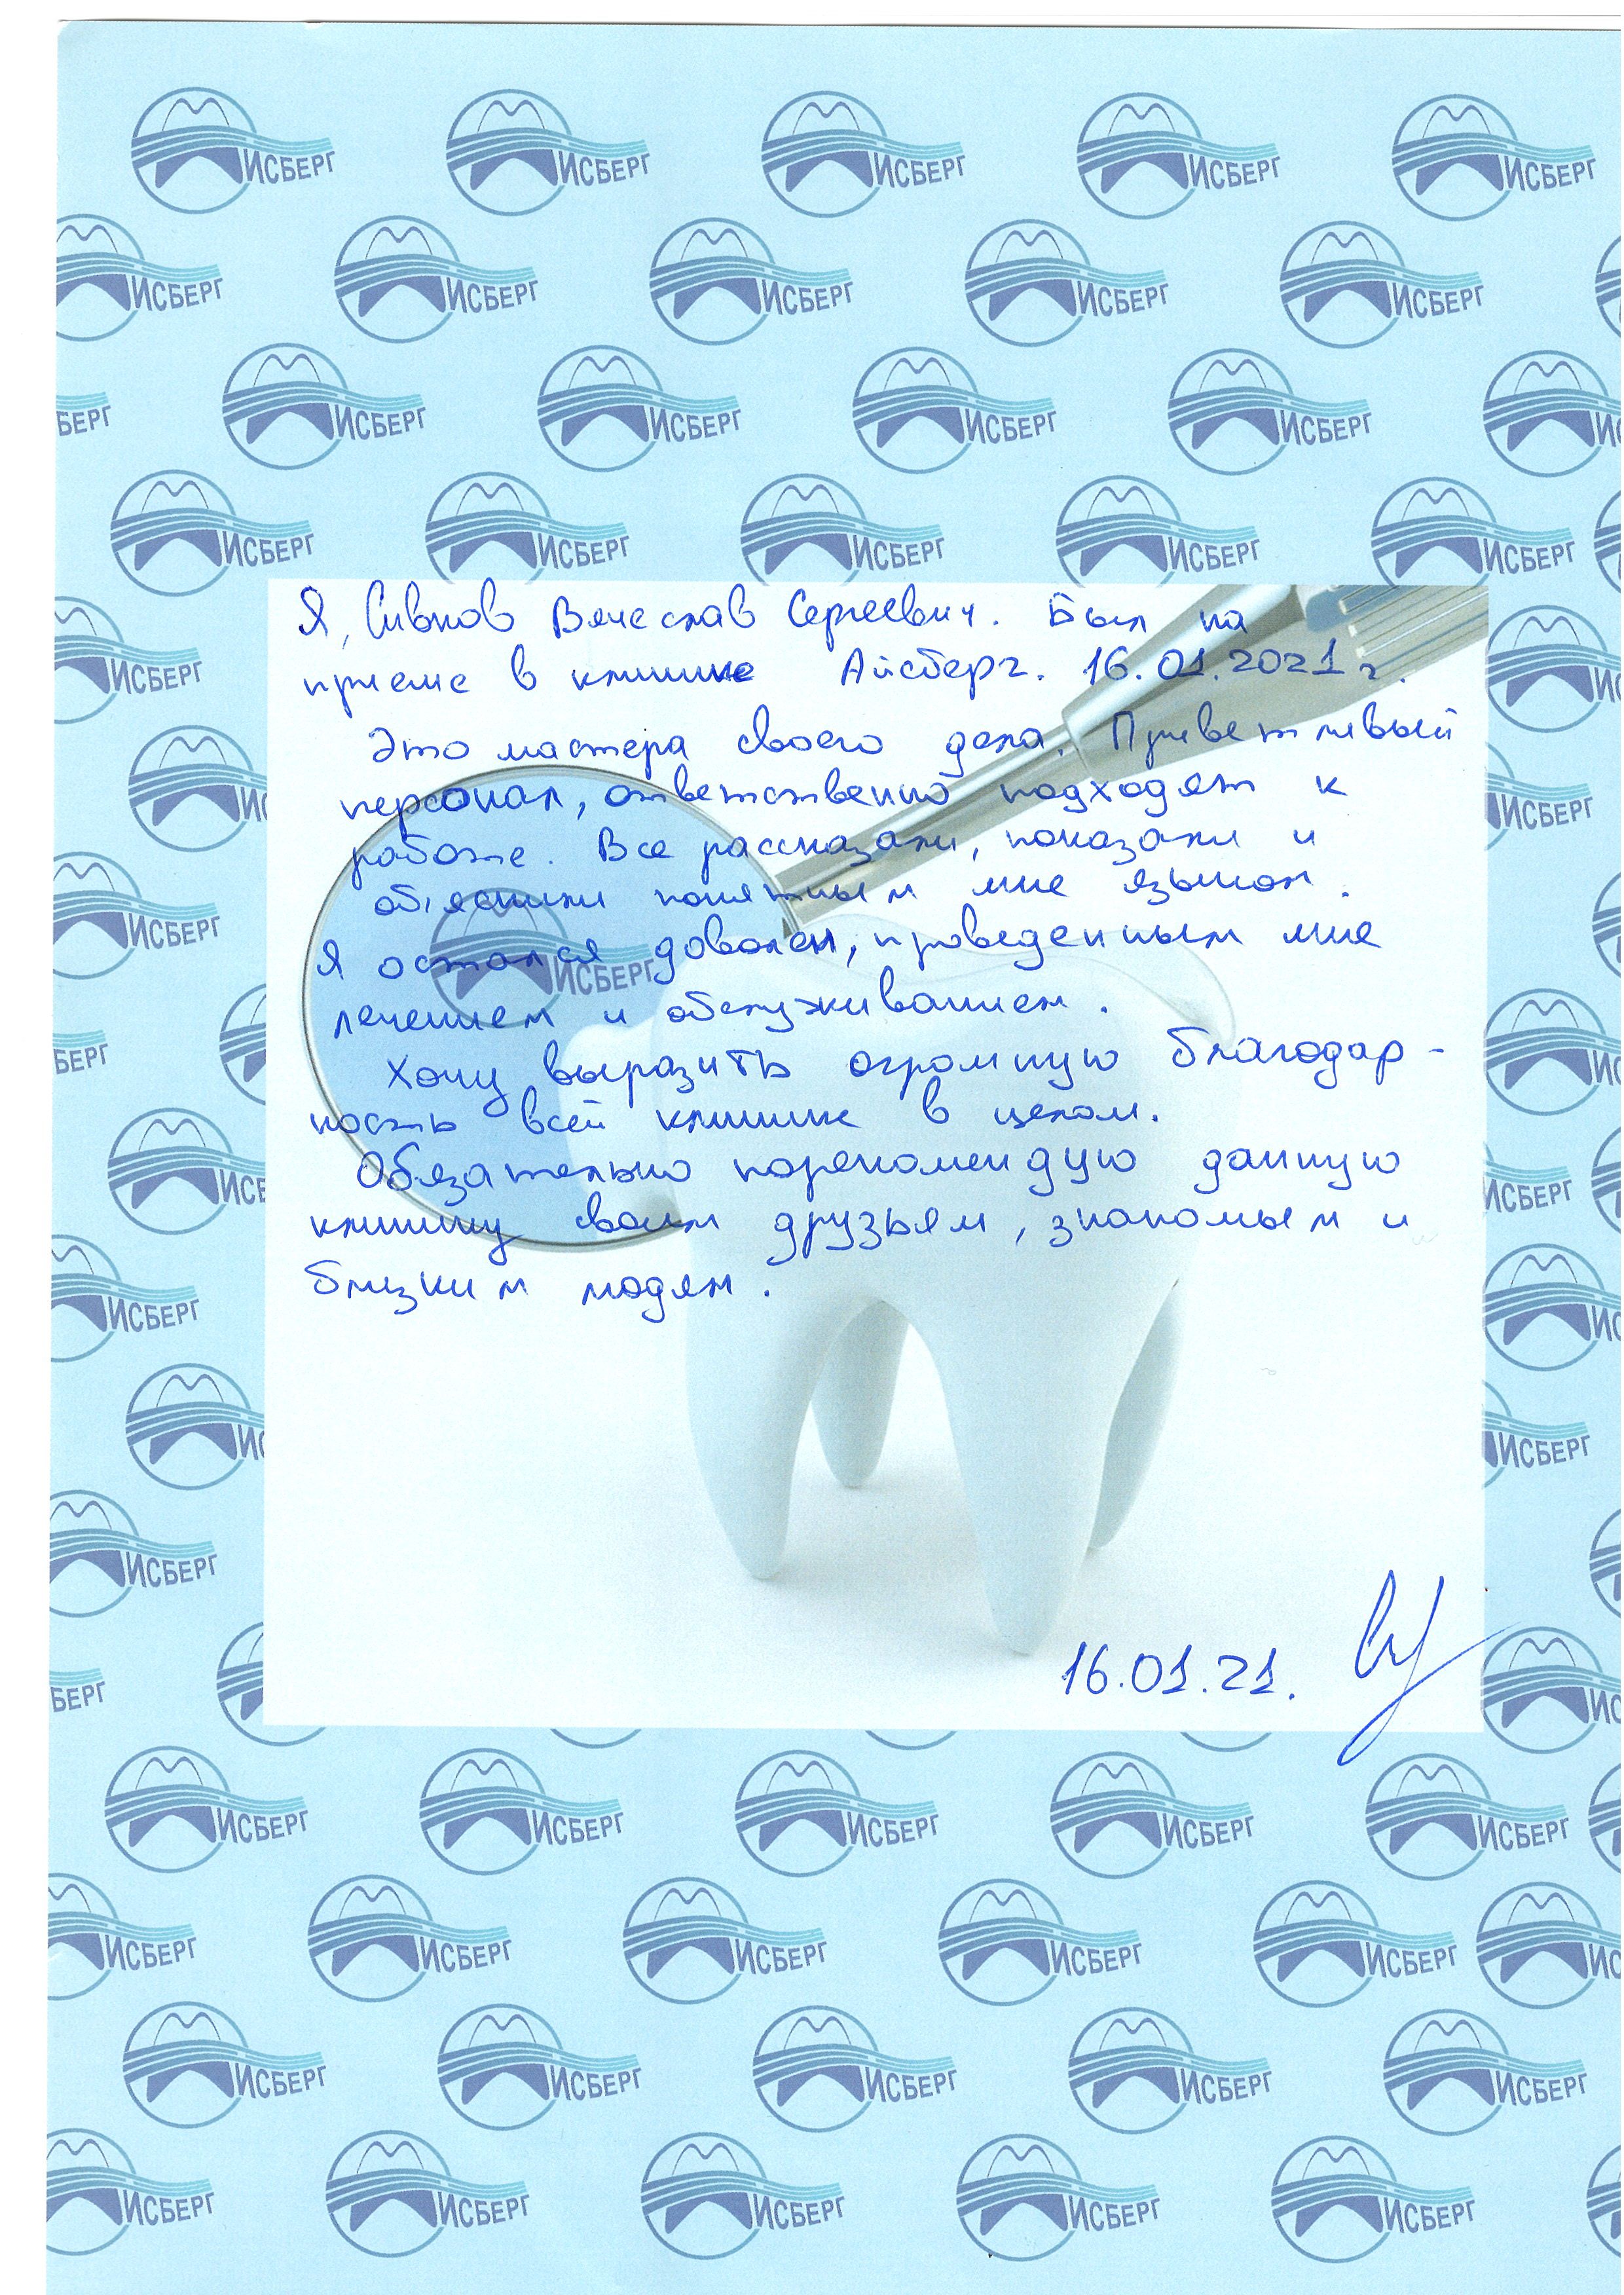 Я, Сивков Вячеслав Сергеевич. Был на
приеме в клинике Айсберг. 16.01.2021г.
Это мастера своего дела. Приветливый
персонал, ответственно подходят к
работе. Все рассказали, показали и
объяснили понятным мне языком.
Я остался доволен, проведенным мне
лечением и обслуживанием.
Хочу выразить огромную благодар-
ность всей клинике в целом.
Обязательно порекомендую данную
клинику своим друзьям, знакомым и
близким людям.
16.01.21.
ИСБЕРГ